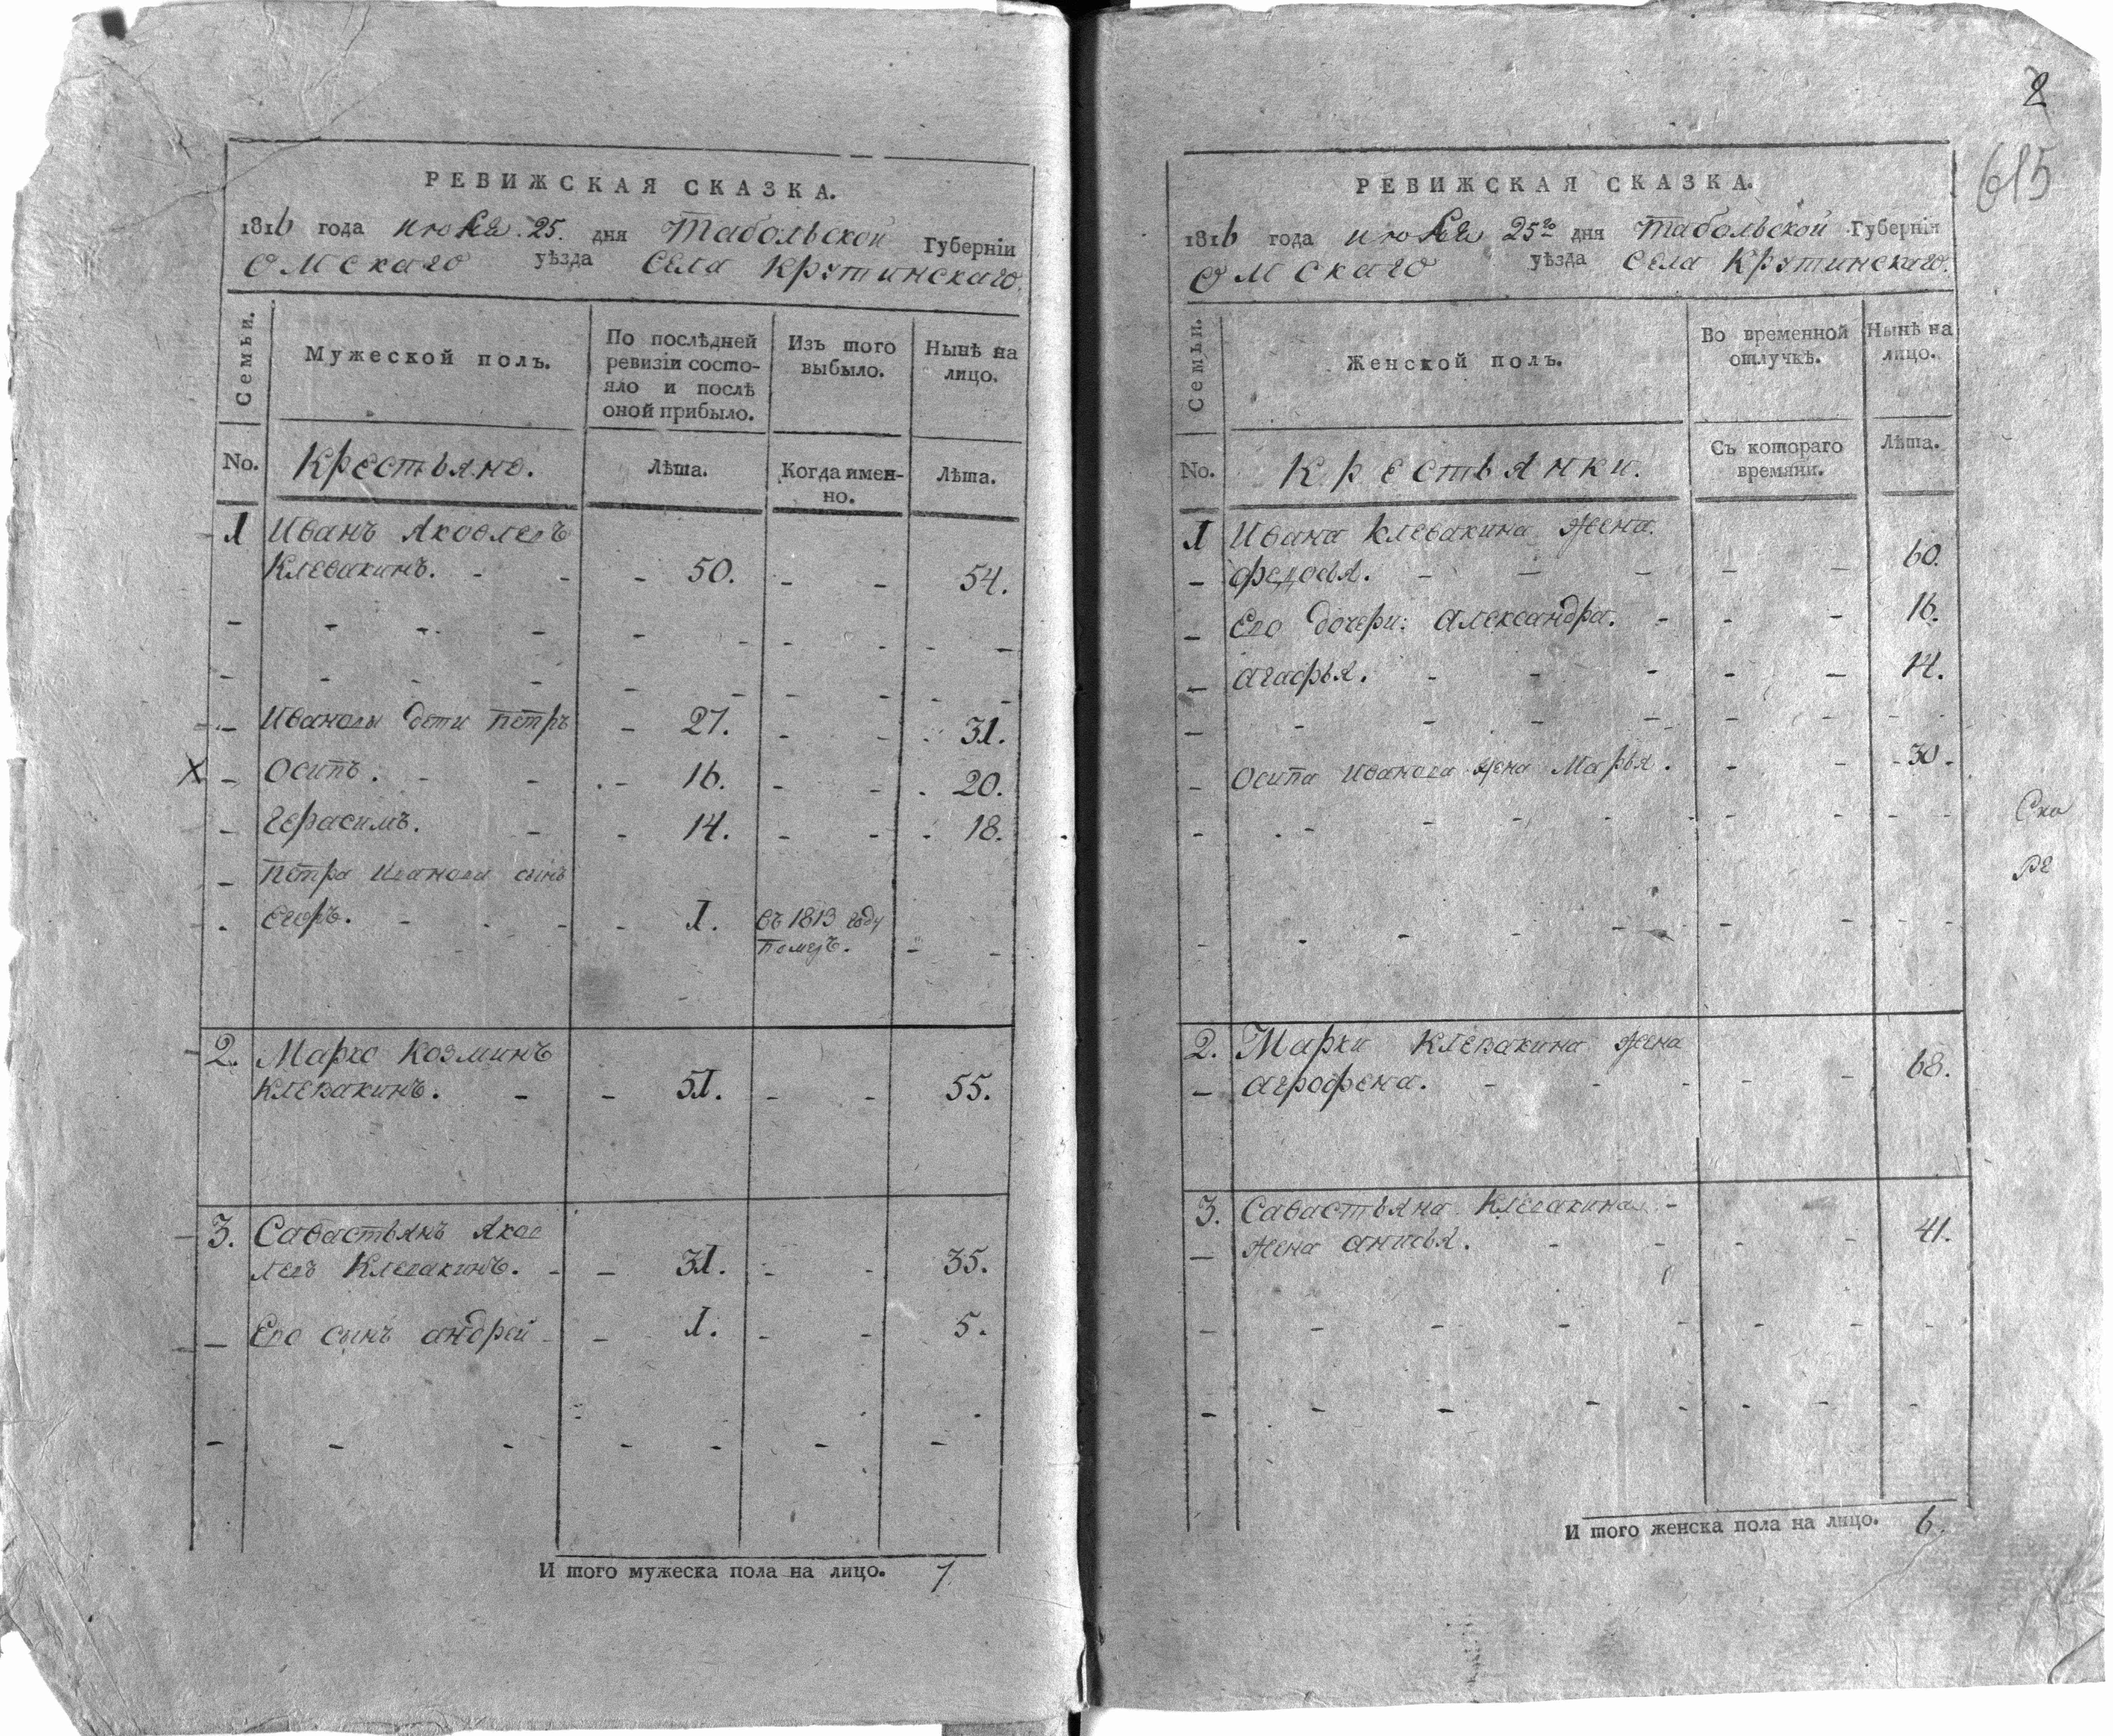 РЕВИЖСКАЯ СКАЗКА.
1816 года июля 25. дня Табольской Губерніи
Омскаго уѣзда Села Крутинскаго.
Семьи.
Мужеской полъ.
По послѣдней ревизіи состо-
яло и послѣ
оной прибыло.
Изъ того
выбыло.
Нынѣ на
лицо.
No. Крестьяне. Лѣта. Когда имен-
но. Лѣта.
1 Иванъ Яковлевъ
Клевакинъ. - - - 50. - - 54.
- Ивановы дети Петръ - 27. - - 31.
X - Осипъ. - - - 16. - - 20.
- Герасимъ. - - 14. - - 18.
- Петра Иванова сынъ
Егоръ. - - - 1. въ 1813 году
померъ. - -
2. Марко Козминъ
Клевакинъ. - - 51. - - 55.
3. Савастьянъ Яков
левъ Клевакинъ. - - 31. - - 35.
- Его сынъ андрей - - 1. - - 5.
И того мужеска пола на лицо. 7
2
615
РЕВИЖСКАЯ СКАЗКА.
1816 года июля 25го дня Табольской Губерніи
Омскаго уѣзда Села Крутинскаго.
Семьи.
Женской полъ.
Во временной
отлучкѣ.
Нынѣ на
лицо.
No. Крестьянки. Съ котораго
времяни. Лѣта.
1 Ивана Клевакина жена
- Федосья. - - - - - 60.
- Его дочери: Александра. - - - 16.
- агафья. - - - - - 14.
- Осипа Иванова жена Марья. - - 30.
Ско
ре
2. Марки Клевакина жена
- агрофена. - - - - - 68.
3. Савастьяна Клевакина -
- жена анисья. - - - - 41.
И того женска пола на лицо. 6.